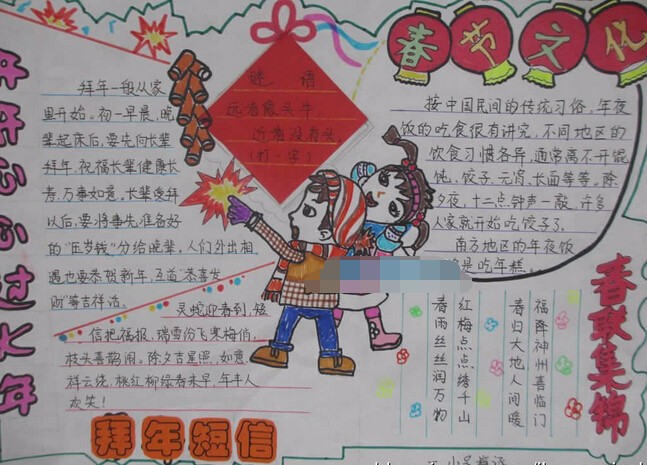 开开心心过大年
拜年一般从家
里开始。初一早晨,晚
辈起床后,要先向长辈
拜年,祝福长辈健康长
寿,万事如意。长辈受拜
以后,要将事先准备好
的“压岁钱”分给晚辈。人们外出相
遇也要恭贺新年,互道“恭喜发
财”等吉祥话。
谜语
远看像头牛,
近看没有头。
(打一字)
春节文化
按中国民间的传统习俗,年夜
饭的吃食很有讲究,不同地区的
饮食习惯各异,通常离不开馄
饨、饺子、元宵、长面等等。除
夕夜,十二点钟声一敲,许多
人家就开始吃饺子了。
南方地区的年夜饭
是吃年糕。
灵蛇迎春到,短
信把福报,瑞雪纷飞寒梅俏,
枝头喜鹊闹,除夕吉星照,如意
祥云绕,桃红柳绿春来早,年年人
欢笑!
拜年短信
春联集锦
福降神州喜临门
春归大地人间暖
红梅点点绣千山
春雨丝丝润万物